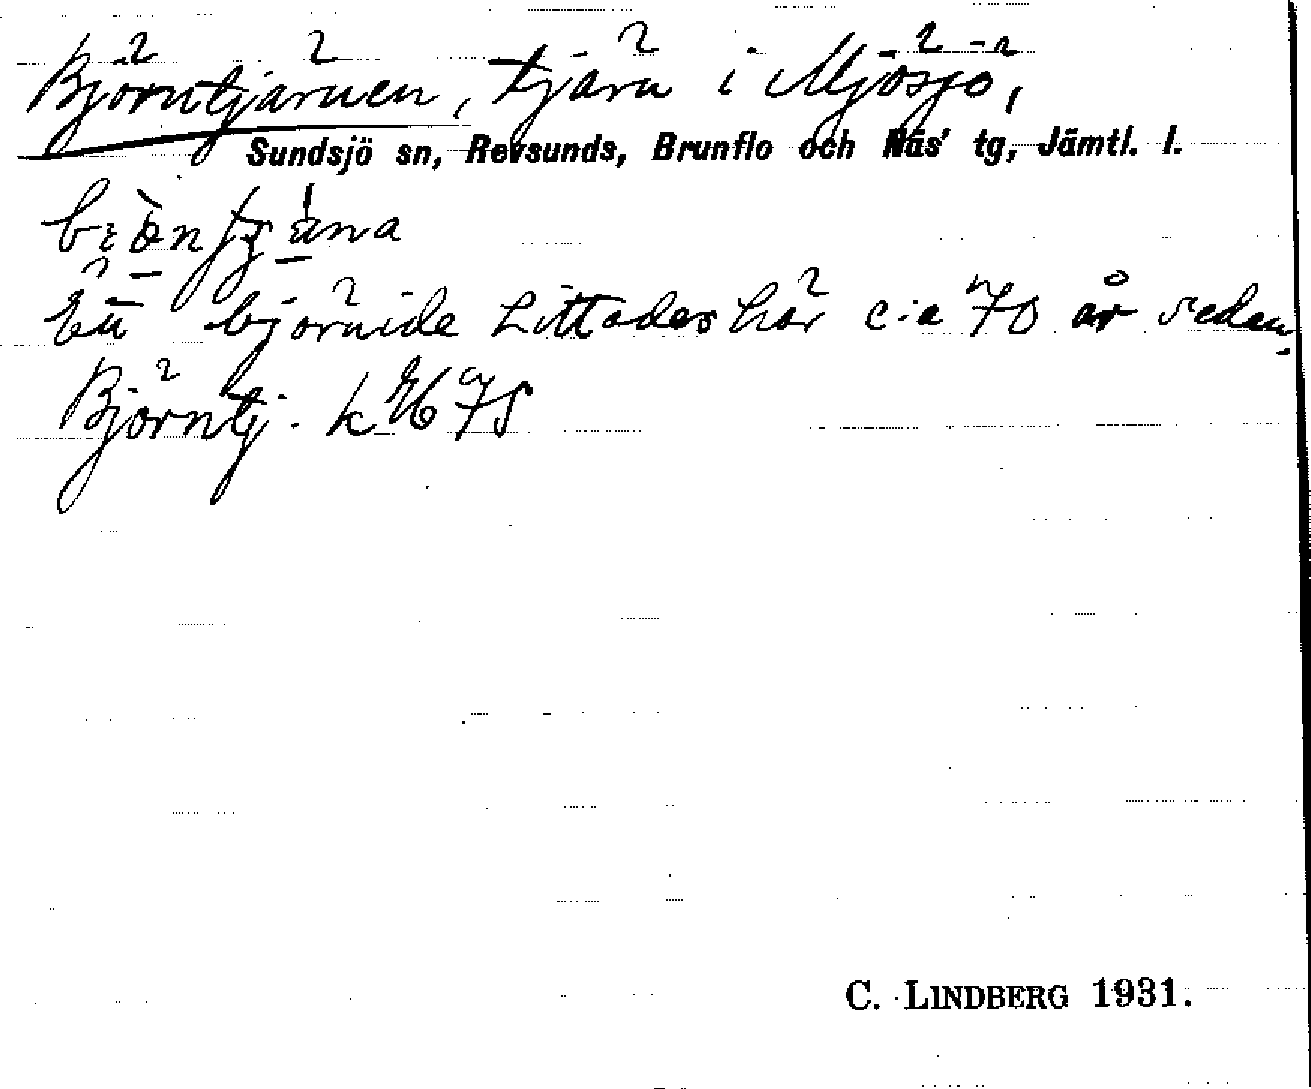 Björntjärnen, tjärn i Mjösjö,
Sundsjö sn, Revsunds, Brunflo och Näs' tg, Jämtl. l.
Ett björnide hittades här c:a 70 år sedan.
Björntj. k
C. LINDBERG 1931.